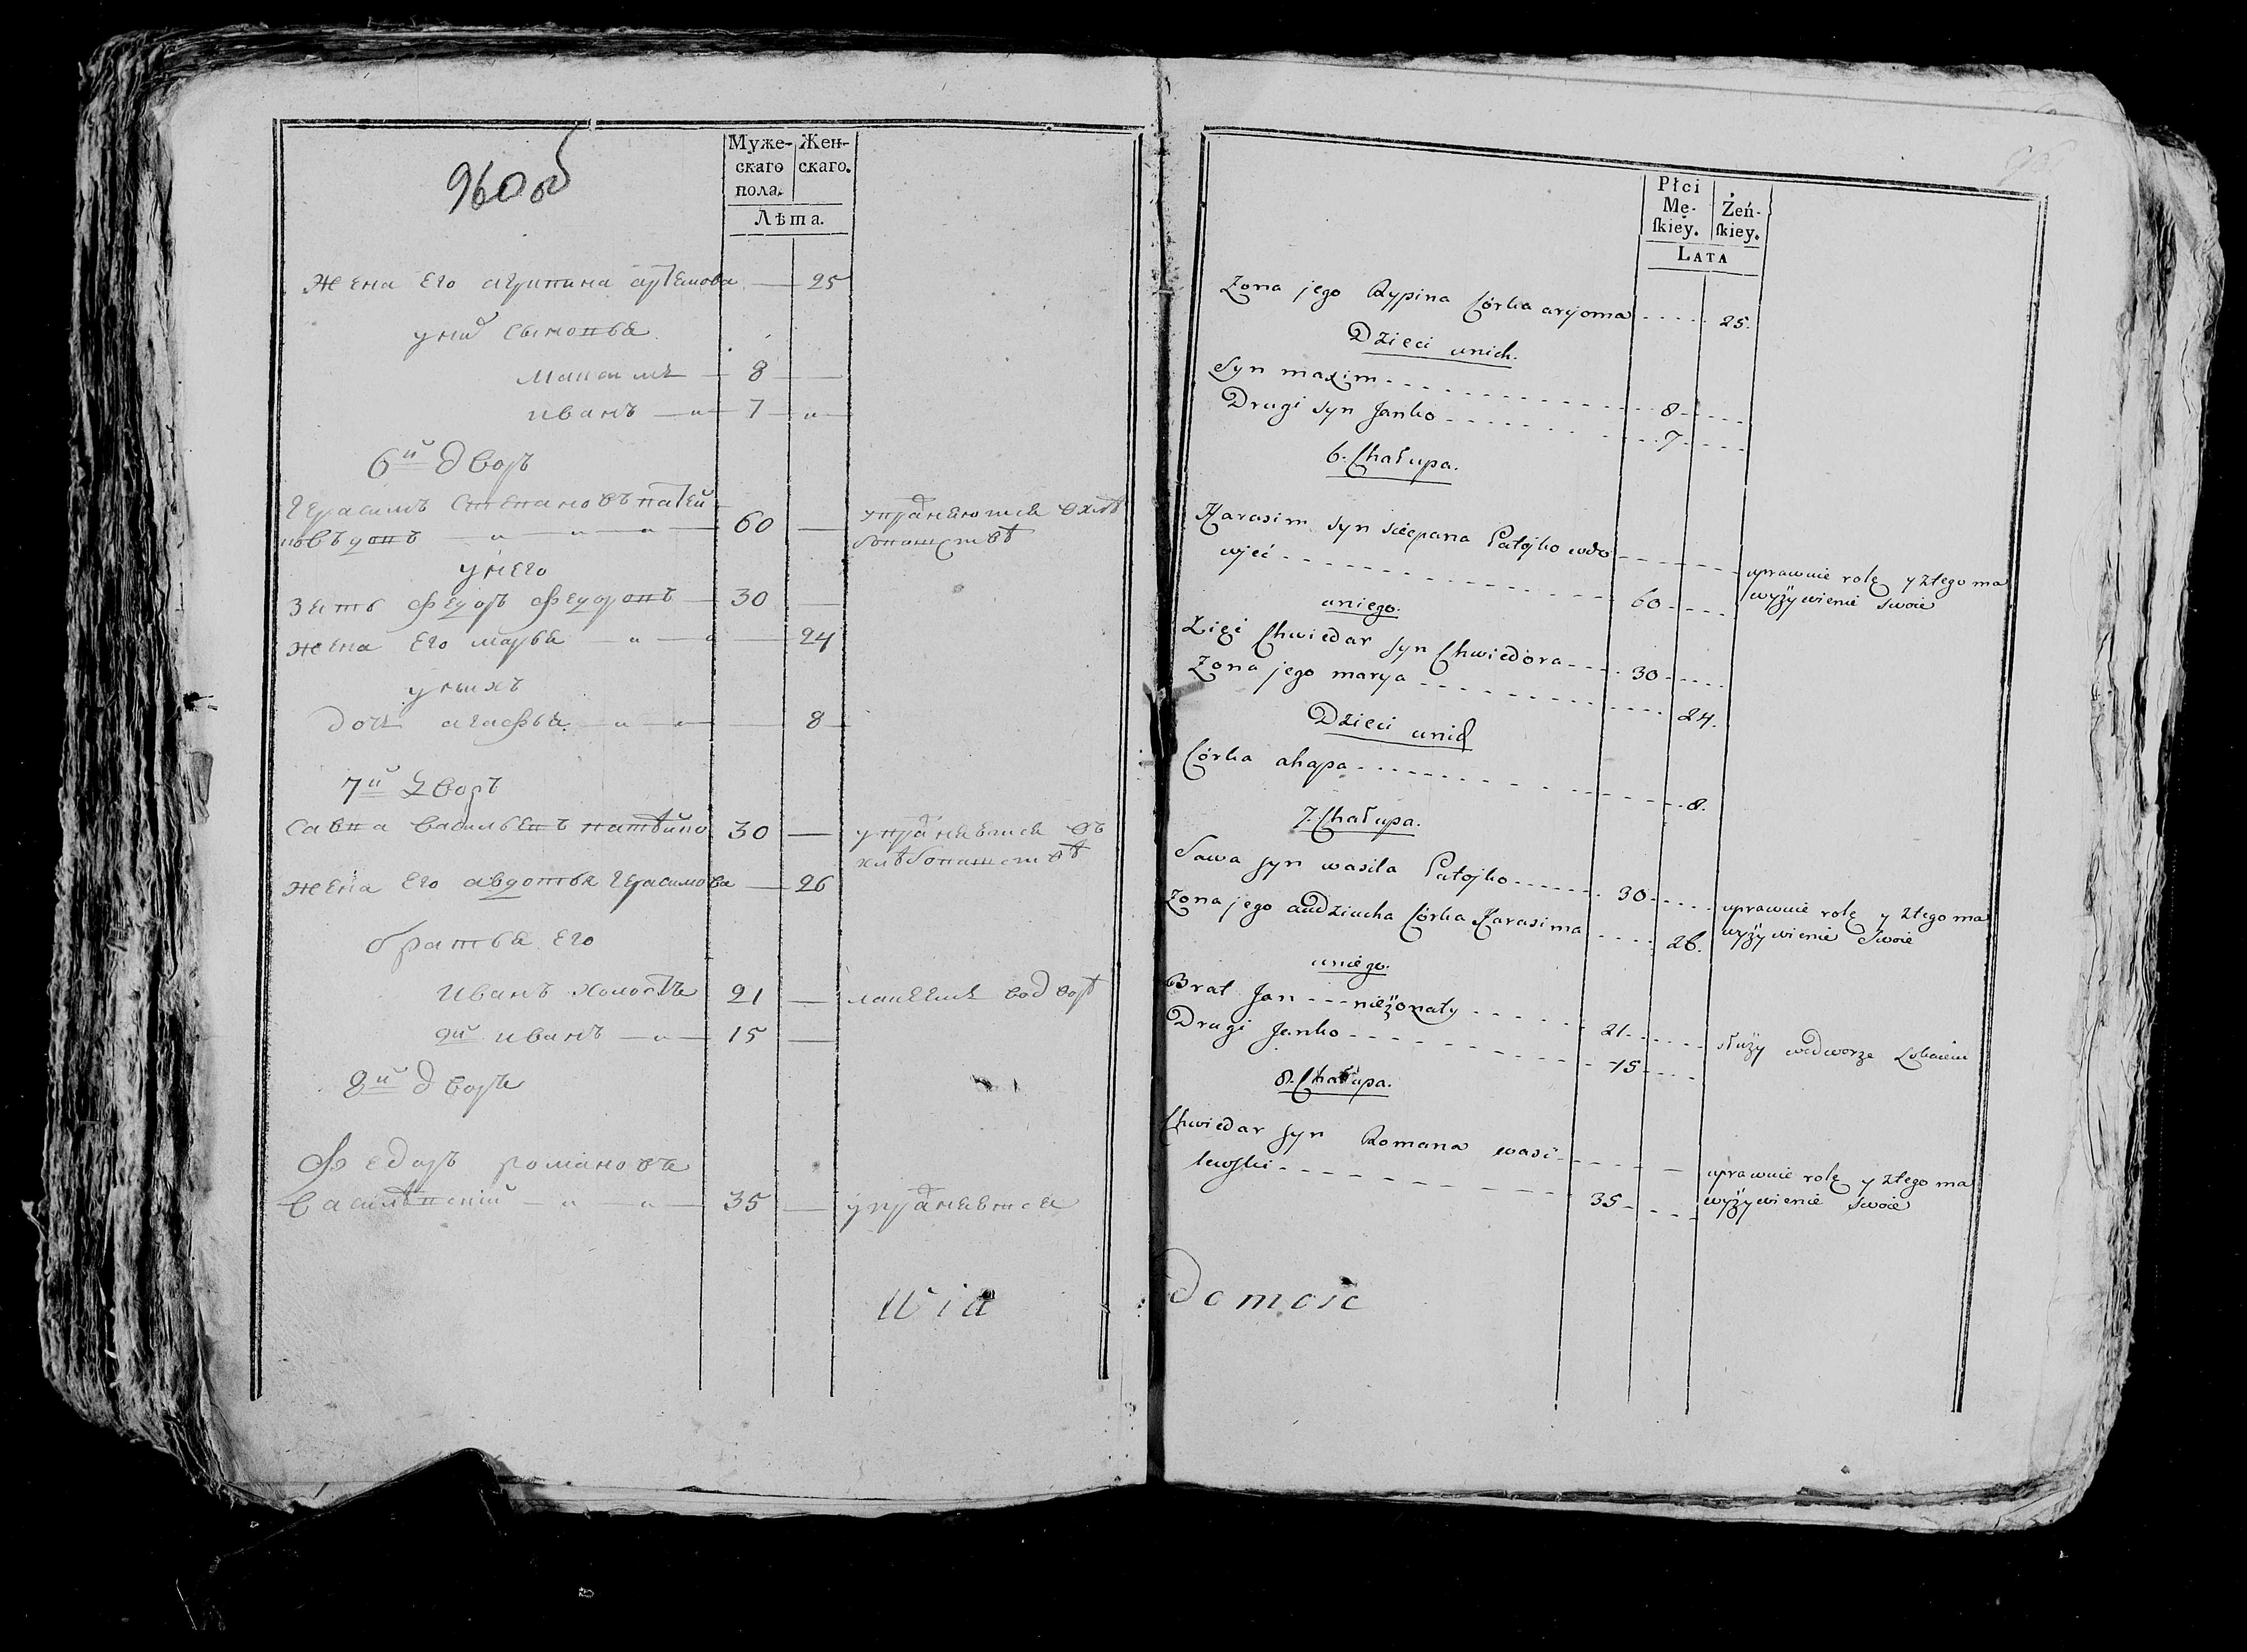 960об
Муже- Жен-
скаго скаго.
пола.
Лѣта.
жена его агрипина артемова — 25
у них сыновья
максимъ — 8 —
иванъ — 7 —
6й дворъ
Герасимъ Степановъ патей
ковъ вдовъ — 60 — упражняются в хлѣ
бопашествѣ
у него
зять федоръ федоровъ — 30 —
жена его марья — 24
у нихъ
дочь агафья — 8
7й дворъ
савка васильевъ патѣйко 30 — упражняется въ
хлѣбопашествѣ
жена его авдотья герасимова — 26
братья его
иванъ холостъ 21 — лакеемъ во дворѣ
2й иванъ — 15 —
8й дворъ
Федоръ романовъ
василевский — 35 — упражняется
Wia
Płci
Mę- Żeń-
skiey. skiey.
LATA
Zona jego Rypina Córka arcjoma 25.
Dzieci unich.
Syn maxim 8
Drugi syn Janko 7
6. Chałupa.
Harasim syn sciepana Patojko wdo
wjec 60 uprawuie rolę y ztego ma
wyżywienie swoie
uniego.
Zięć Chwiedar syn Chwiedora 30
Zona jego marya 24.
Dzieci unich
Córka ahapa 8.
7. Chałupa.
Sawa syn wasila Patojko 30 uprawuie rolę y ztego ma
wyżywienie Swoie
Zona jego audziucha Córka Harasima 26.
uniego.
Brat Jan nieżonaty 21 służy wedworze
Drugi Janko 15
8. Chałupa.
Chwiedar syn Romana wasi
lewski 35 uprawuie rolę y ztego ma
wyżywienie Swoie
domosc